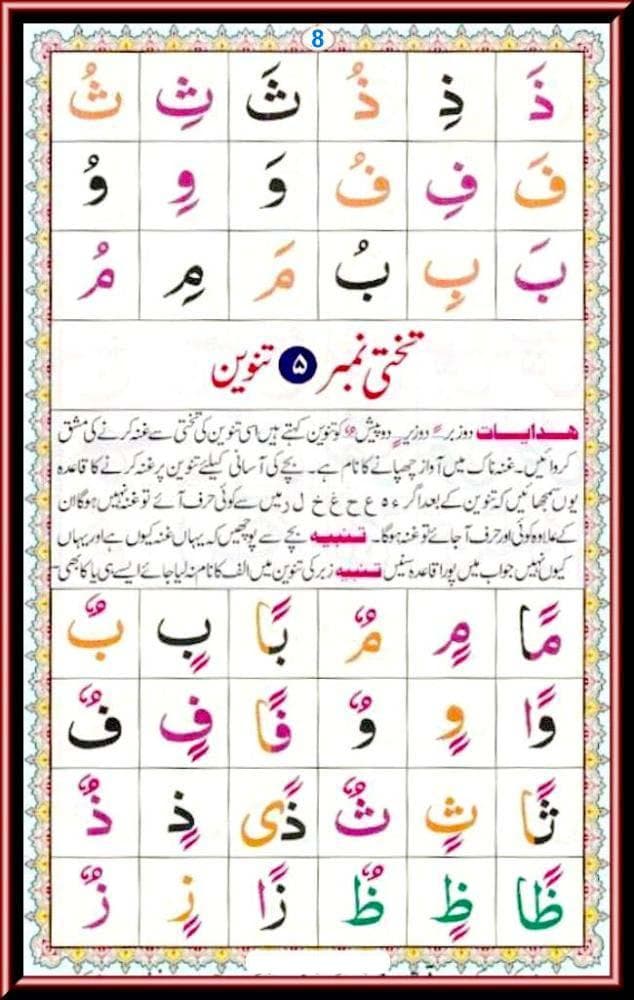 8
ذَ ذِ ذُ ثَ ثِ ثُ
فَ فِ فُ وَ وِ وُ
بَ بِ بُ مَ مِ مُ
تختی نمبر ۵ تنوین
ھدایات دو زبر ـً دو زیر ـٍ دو پیش ـٌ کو تنوین کہتے ہیں اسی تنوین کی تختی سے غنہ کرنے کی مشق
کروائیں۔ غنہ ناک میں آواز چھپانے کا نام ہے۔ بچے کی آسانی کیلئے تنوین پر غنہ کرنے کا قاعدہ
یوں سمجھائیں کہ تنوین کے بعد اگر ء ہ ع ح غ خ ل ر میں سے کوئی حرف آئے تو غنہ نہیں ہوگا ان
کے علاوہ کوئی اور حرف آجائے تو غنہ ہوگا۔ تنبیہ بچے سے پوچھیں کہ یہاں غنہ کیوں ہے اور یہاں
کیوں نہیں جواب میں پورا قاعدہ سنیں تنبیہ زبر کی تنوین میں الف کا نام نہ لیا جائے ایسے ہی یا کا بھی
مًا مٍ مٌ بًا بٍ بٌ
وًا وٍ وٌ فًا فٍ فٌ
ثًا ثٍ ثٌ ذًی ذٍ ذٌ
ظًا ظٍ ظٌ زًا زٍ زٌ